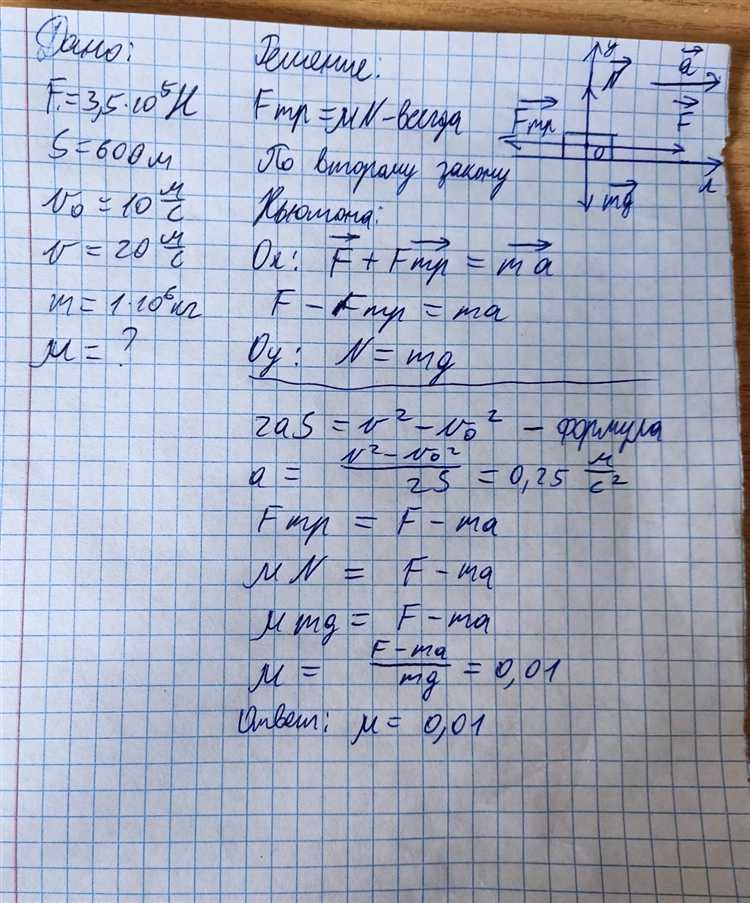 Дано:
F = 3,5·10⁵ Н
S = 600 м
v₀ = 10 м/с
v = 20 м/с
m = 1·10⁶ кг
μ = ?
Решение:
Fтр = μN – всегда
По второму закону
Ньютона:
Ох: F⃗ + F⃗тр = m⃗a
F – Fтр = ma
Оу: N = mg
2aS = v² – v₀² – формула
a = (v² – v₀²)/2S = 0,25 м/с²
Fтр = F – ma
μN = F – ma
μmg = F – ma
μ = (F – ma)/mg = 0,01
Ответ: μ = 0,01
y
N⃗
a⃗
F⃗тр
F⃗
0
x
m⃗g